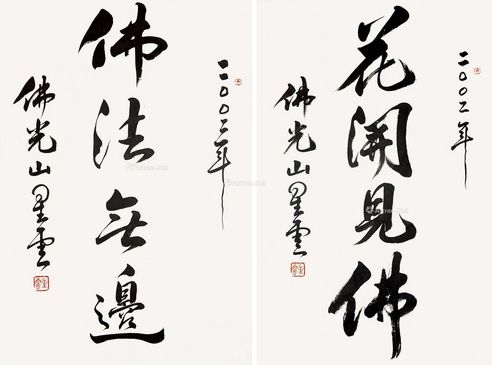 二〇〇二年
花開見佛
佛光山星雲
二〇〇二年
佛法無邊
佛光山星雲